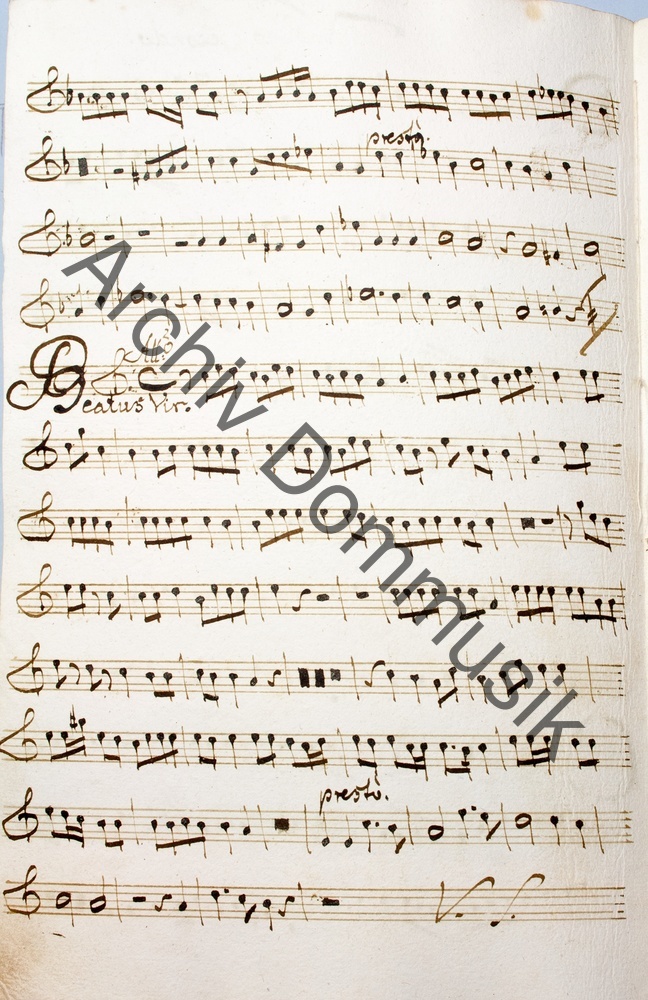 presto.
All:º
Beatus Vir.
presto.
V. S.
Archiv Dommusik